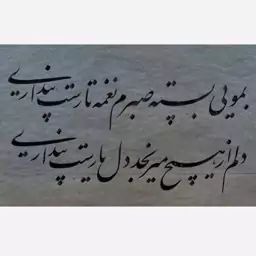 بمویی بسته صبرم نغمه تارست پنداری
دلم از هیچ میرنجد دل یارست پنداری